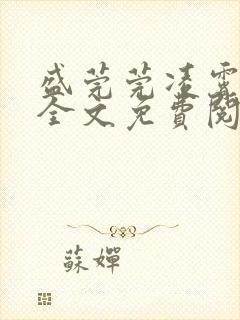 盛莞莞凌霄
全文免費閱
蘇嬋